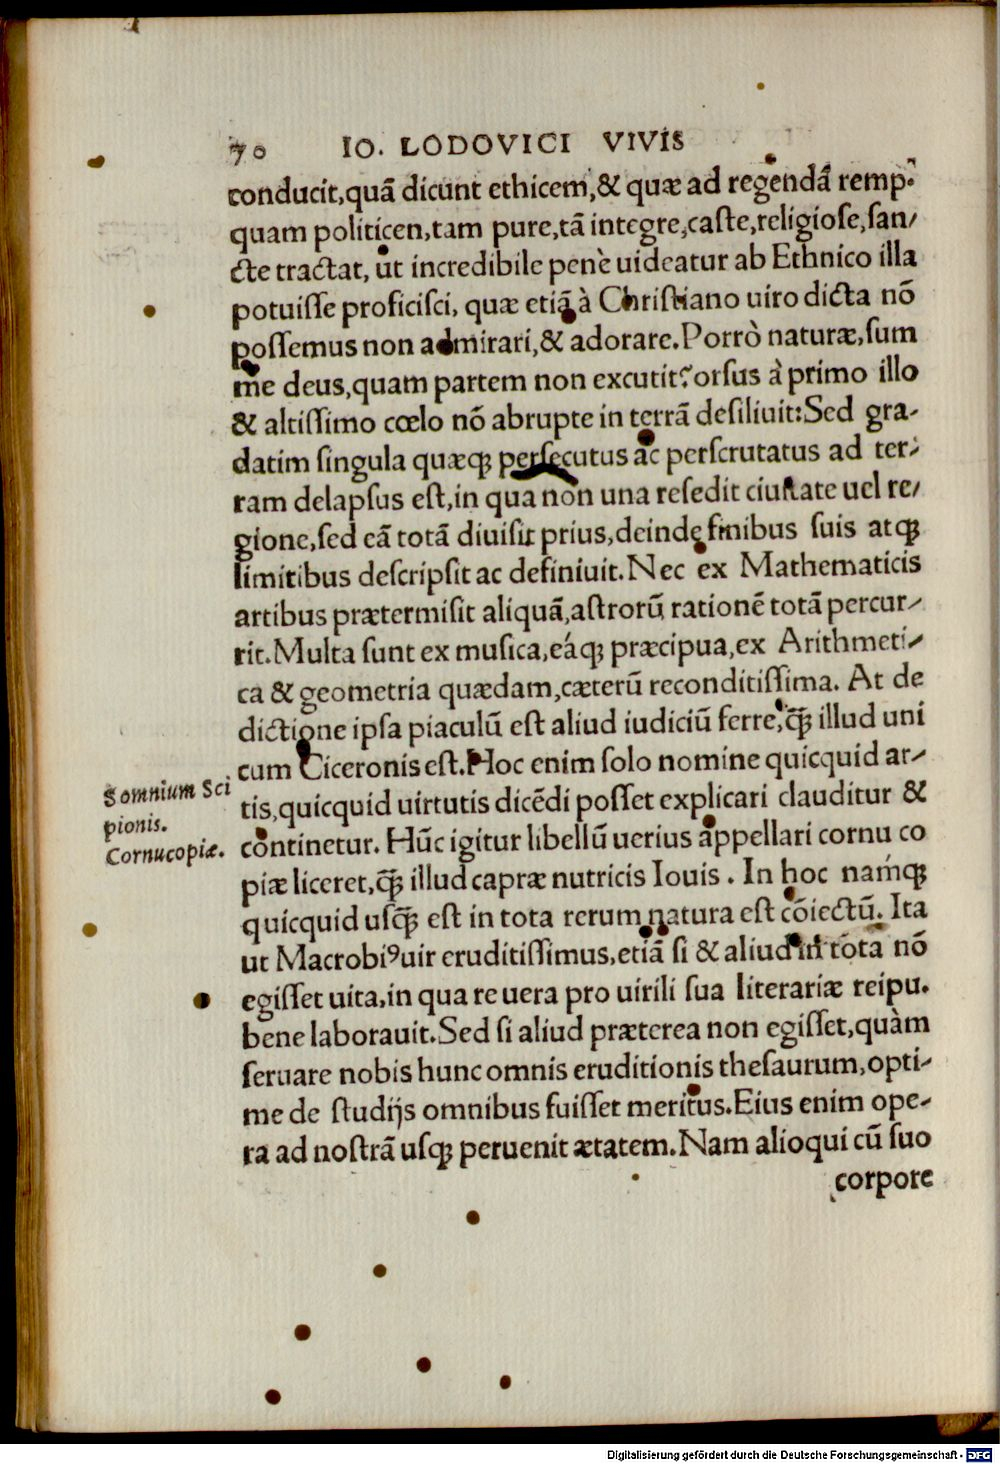 70 IO. LODOVICI VIVIS
conducit,quā dicunt ethicem,& quæ ad regendā remp.
quam politicen,tam pure,tā integre,caste,religiose,san/
cte tractat, ut incredibile penè uideatur ab Ethnico illa
potuisse proficisci, quæ etiā à Christiano uiro dicta nō
possemus non admirari,& adorare.Porrò naturæ,sum
me deus,quam partem non excutit?orsus à primo illo
& altissimo cœlo nō abrupte in terrā desiliuit:Sed gra-
datim singula quæq; persecutus ac perscrutatus ad ter-
ram delapsus est,in qua non una resedit ciuitate uel re/
gione,sed eā totā diuisit prius,deinde finibus suis atq;
limitibus descripsit ac definiuit.Nec ex Mathematicis
artibus prætermisit aliquā,astrorū rationē totā percur-
rit.Multa sunt ex musica,eáq; præcipua,ex Arithmeti-
ca & geometria quædam,cæterū reconditissima. At de
dictione ipsa piaculū est aliud iudiciū ferre,q̄; illud uni
cum Ciceronis est.Hoc enim solo nomine quicquid ar-
tis,quicquid uirtutis dicēdi posset explicari clauditur &
continetur. Hūc igitur libellū uerius appellari cornu co
piæ liceret,q̄; illud capræ nutricis Iouis. In hoc namq;
quicquid usq̄; est in tota rerum natura est cōiectū. Ita
ut Macrobiꝰ uir eruditissimus,etiā si & aliud in tota nō
egisset uita,in qua re uera pro uirili sua literariæ reipu.
bene laborauit.Sed si aliud præterea non egisset,quàm
seruare nobis hunc omnis eruditionis thesaurum,opti-
me de studijs omnibus fuisset meritus.Eius enim ope-
ra ad nostrā usq; peruenit ætatem.Nam alioqui cū suo
corpore
Somnium Sci
pionis.
Cornucopiæ.
Digitalisierung gefördert durch die Deutsche Forschungsgemeinschaft - DFG